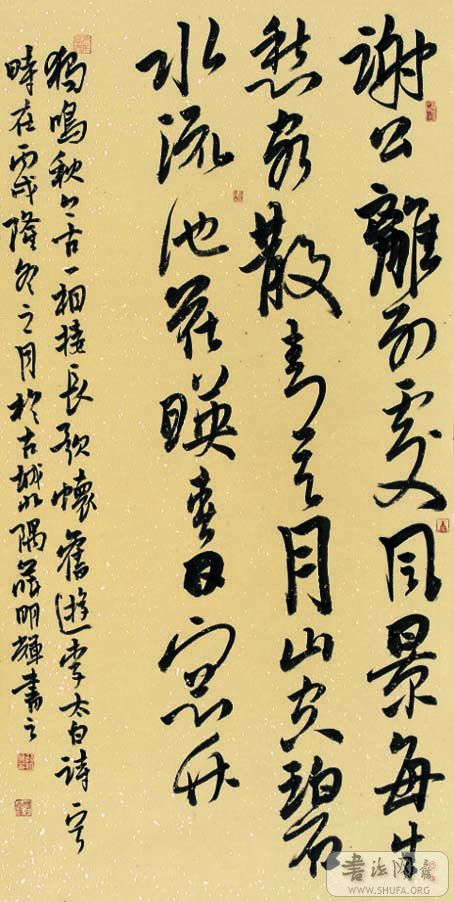 謝公離別處風景每生
愁客散青天月山空碧
水流池花暎春日窗竹
獨鳴秋今古一相接長歌懷舊遊李太白詩一首
時在丙戌隆冬之月於古城北隅蔣明輝書之
書法网
WWW.SHUFA.ORG